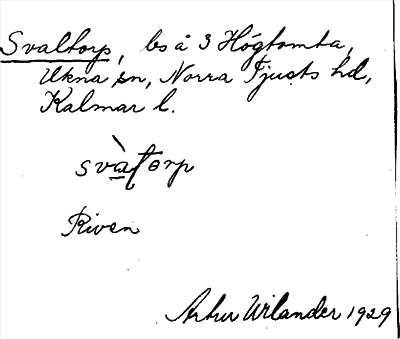 Svaltorp, bs å 3 Högtomta,
Ukna sn, Norra Tjusts hd,
Kalmar l.
svàʈorp
Riven
Arthur Wilander 1929